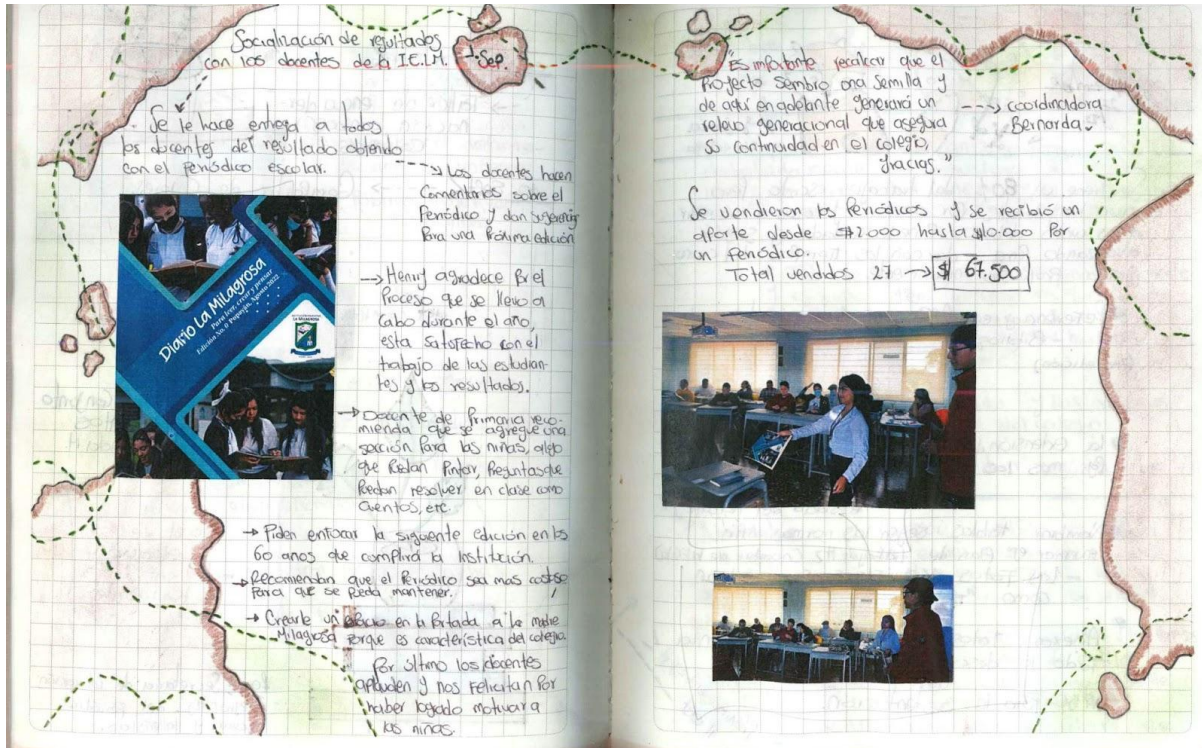 Socialización de resultados
con los docentes de la I.E.L.M.
1 Sep.
Se le hace entrega a todos
los docentes del resultado obtenido
con el periódico escolar.
Los docentes hacen
Comentarios sobre el
Periódico y dan sugerencias
Para una Próxima edición
Diario La Milagrosa
Para leer, crear y pensar
Edición No. 6 Popayán, Agosto 2022
LA MILAGROSA
Henry agradece Por el
Proceso que se llevo a
cabo durante el año,
esta satisfecho con el
trabajo de las estudian-
tes y los resultados.
Docente de Primaria reco-
mienda que se agregue una
sección Para las niñas, algo
que Puedan Pintar, Preguntas que
Puedan resolver en clase como
cuentos, etc.
Piden enfocar la siguiente edición en los
60 anos que cumplirá la institución.
Recomiendan que el Periódico sea mas costoso
Para que se Pueda mantener.
Crearle un espacio en la Portada a la madre
Milagrosa Porque es característica del colegio.
Por último los docentes
aplauden y nos felicitan Por
haber logrado motivar a
las niñas.
"Es importante recalcar que el
Proyecto sembro una semilla y
de aquí en adelante generará un
relevo generacional que asegura
su continuidad en el colegio,
gracias."
coordinadora
Bernarda.
Se vendieron los Periódicos y se recibió un
aporte desde $2.000 hasta $10.000 Por
un Periódico.
Total vendidos 27 → $ 67.500